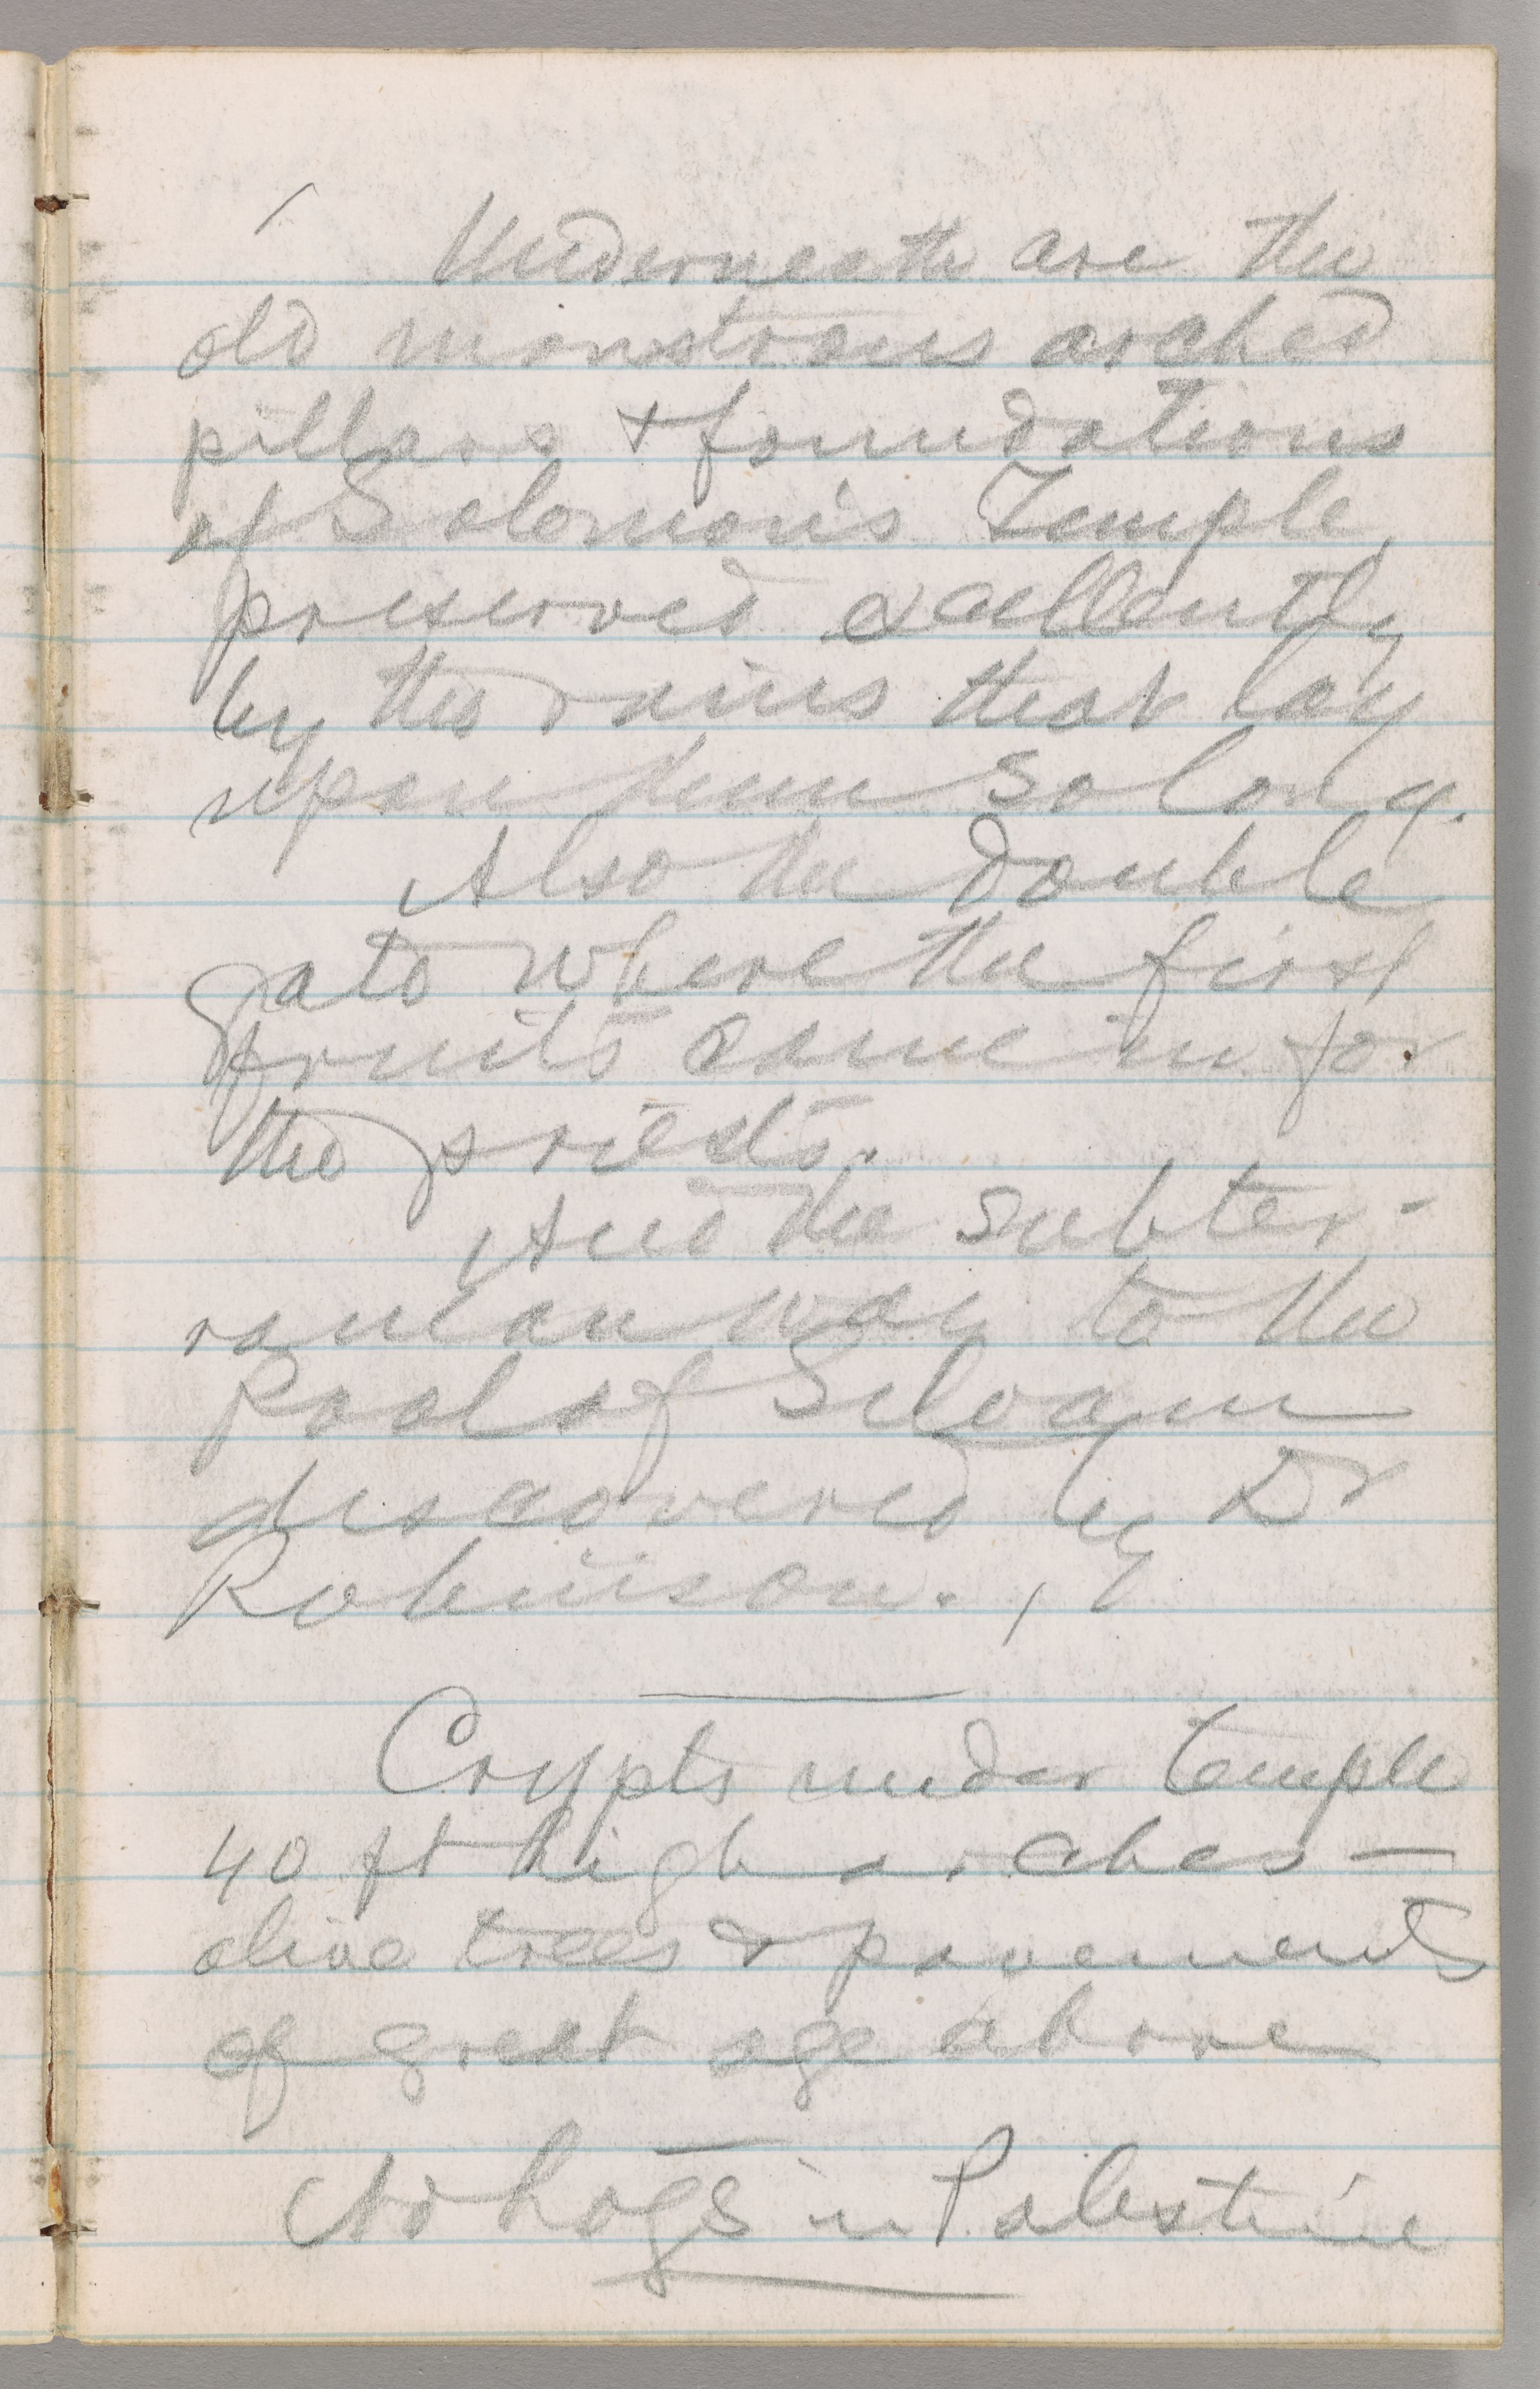 Underneath are the
old monstrous arched
pillars + foundations
of Solomon's Temple,
preserved excellently
by the ruins that lay
upon them so long.
Also the double
gate where the first
fruits came in for
the priests.
And the subter-
ranean way to the
Pool of Siloam
discovered by Dr
Robinson.
Crypts under temple
40 ft high arches —
olive trees & pavements
of great age above
No hogs in Palestine